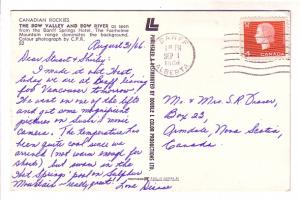 CANADIAN ROCKIES
THE BOW VALLEY AND BOW RIVER as seen
from the Banff Springs Hotel. The Fairholme
Mountain range dominates the background.
Colour photograph by C.P.R.
August 31/66
Dear Stuart & Shirley:
I made it out West,
today we are at Banff, leaving
for Vancouver tomorrow! The
rest on one of the lifts and
got some magnificent
pictures on Stuie's movie
camera. The temperature has
been quite cool since we
arrived (not warm enough for
shorts) but swam in the
Hot Springs pool on Sulphur
Mountain - really great!
BANFF
SEP 1
ALBERTA
CANADA
Mr. & Mrs. S. R.
Box 23,
Armdale, Nova Scotia,
Canada.